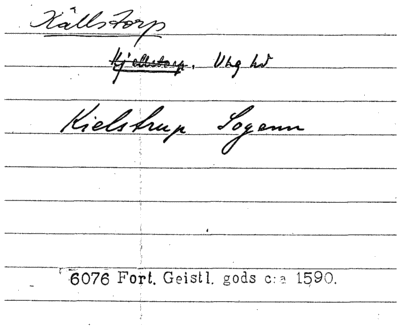 Källstorp
Kjellstorp. Vbg hd
Kielstrup Sogenn
6076 Fort. Geistl. gods c:a 1590.